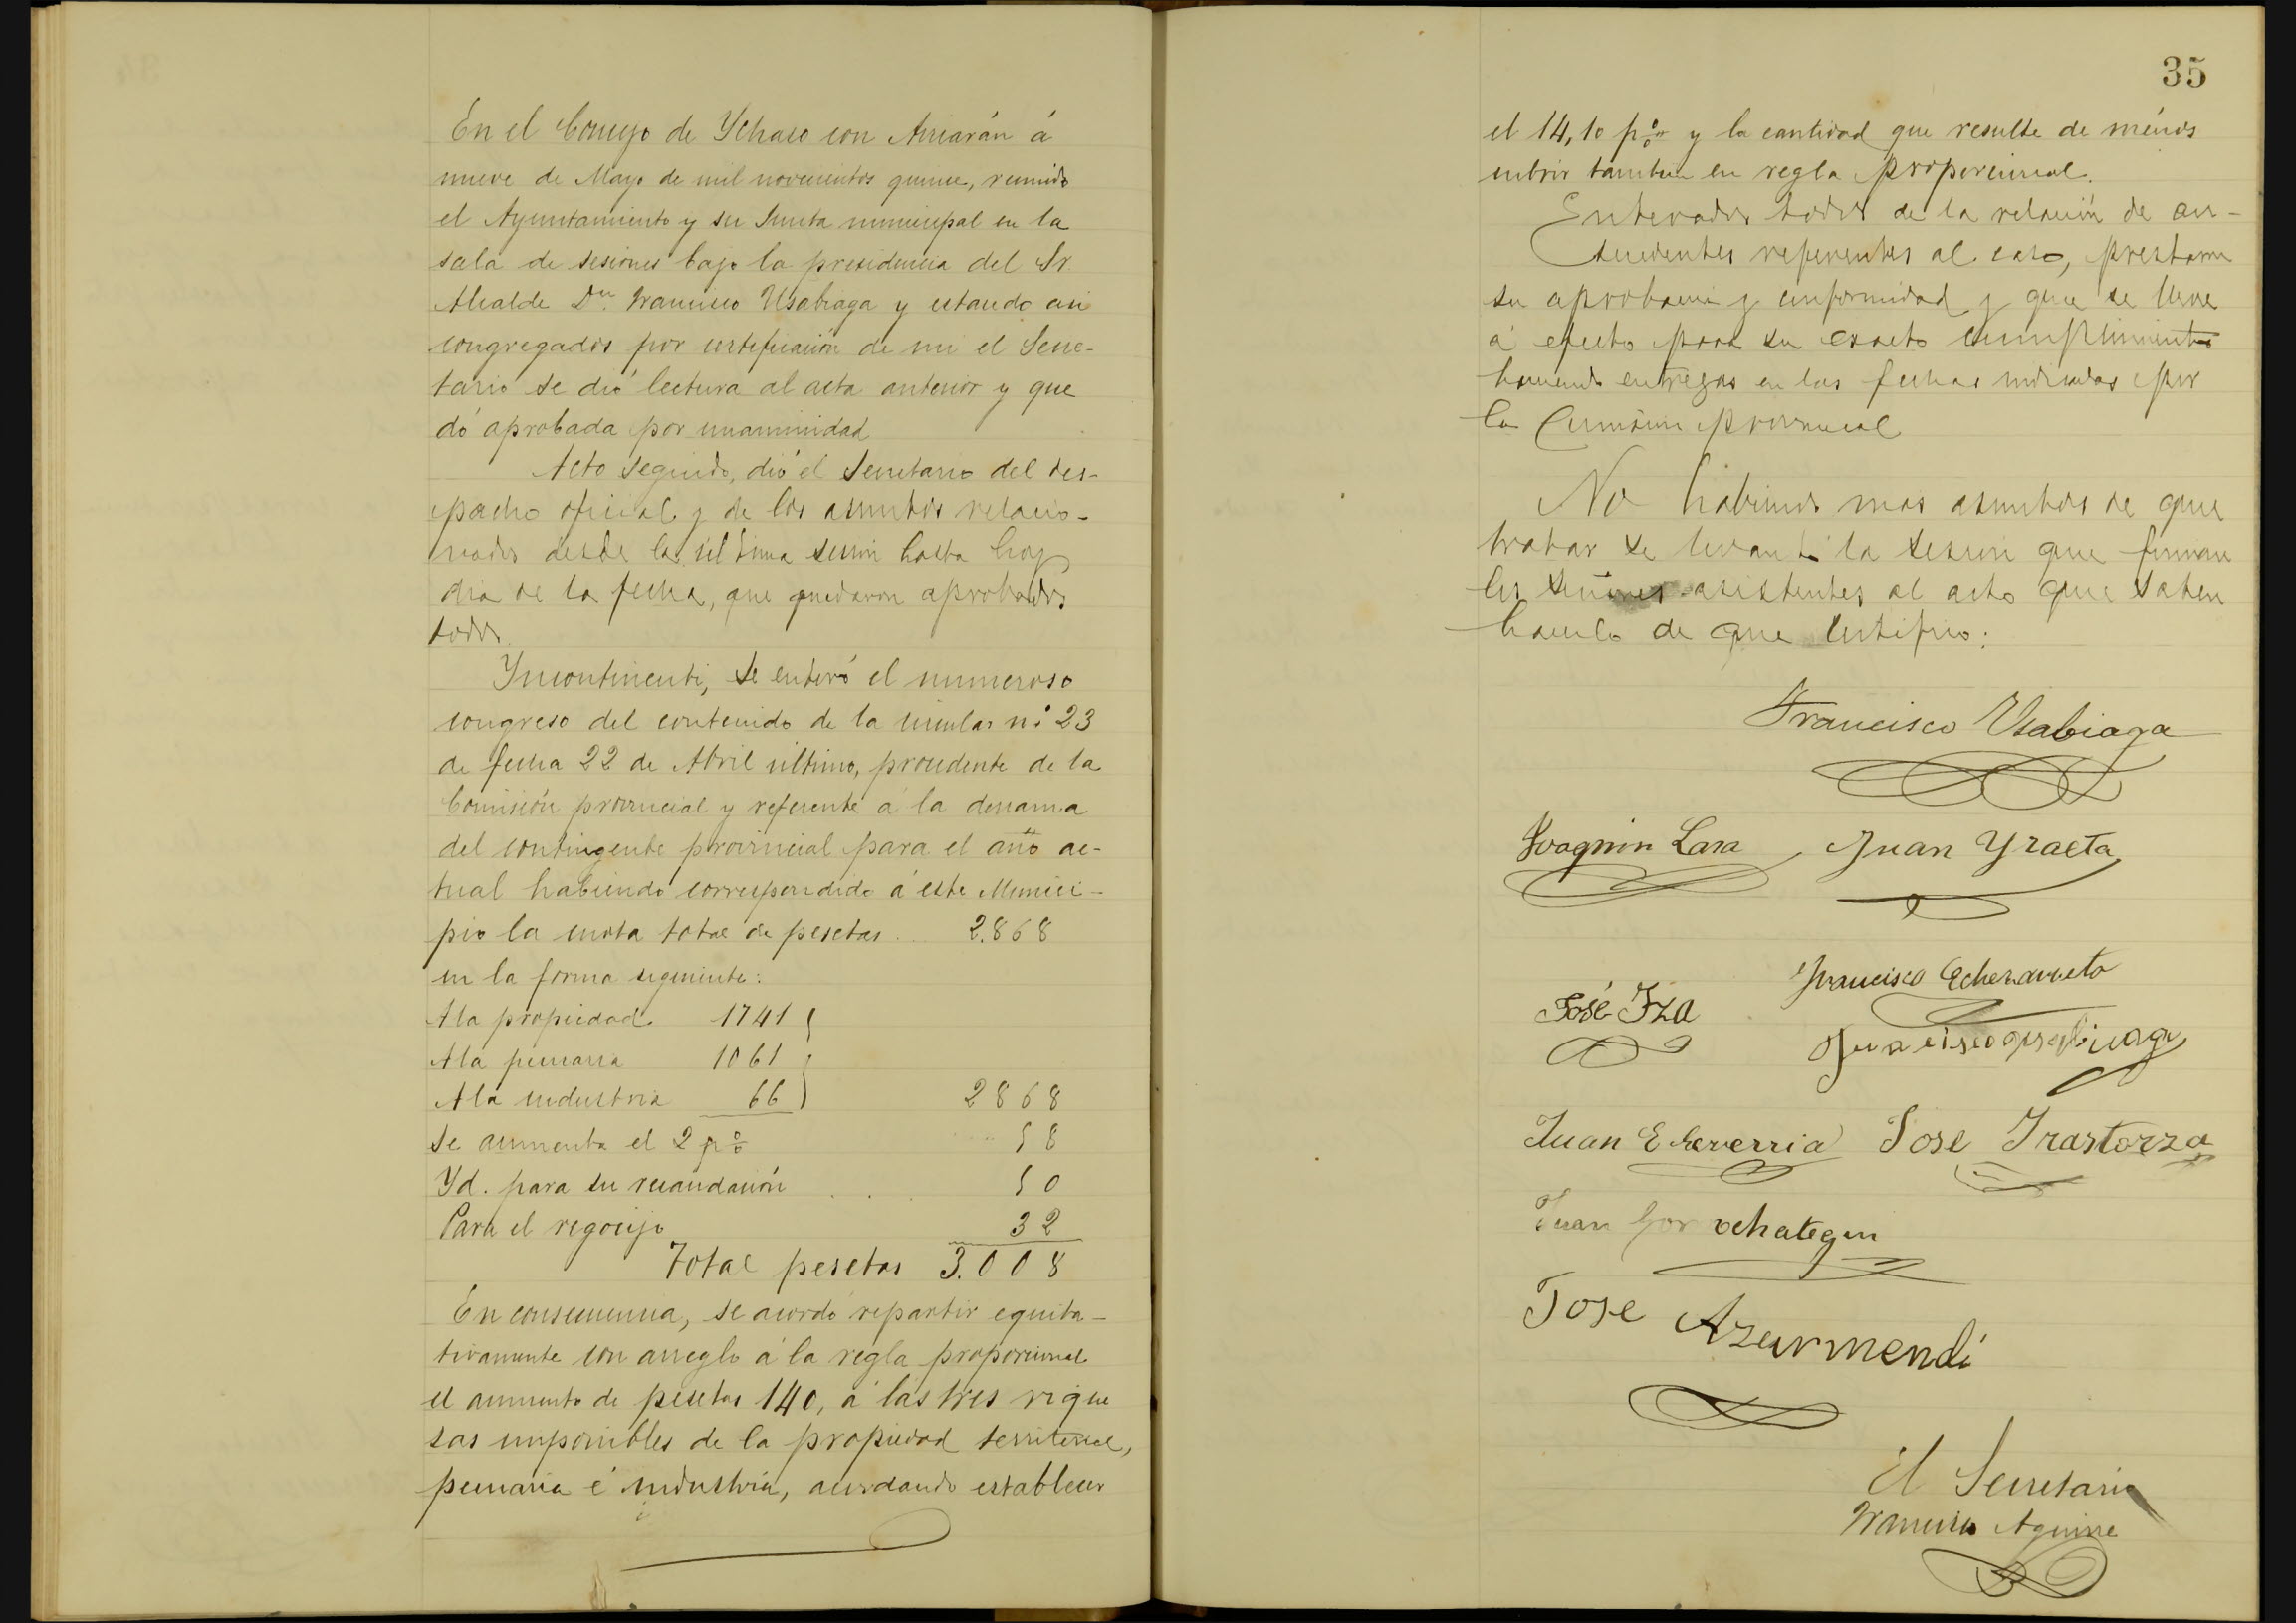 En el Concejo de Ychaso con Arriarán á
nueve de Mayo de mil novecientos quince, reunido
el Ayuntamiento y su Junta municipal en la
sala de sesiones bajo la presidencia del Sr.
Alcalde Dn. Francisco Usabiaga y estando asi
congregados por certificación de mi el Secre-
tario se dió lectura al acta anterior y que
dó aprobada por unanimidad
Acto seguido, dió el Secretario del des-
pacho oficial y de los asuntos relacio-
nados desde la última sesión hasta hoy
dia de la fecha, que quedaron aprobados
todos.
Yncontinenti, se enteró el numeroso
congreso del contenido de la circular n.º 23
de fecha 22 de Abril último, procedente de la
Comisión provincial y referente á la derrama
del contingente provincial para el año ac-
tual habiendo correspondido á este Munici-
pio la cuota total de pesetas .... 2.868
en la forma siguiente:
A la propiedad 1741
A la pecuaria 1061
A la industria 66 2868
Se aumenta el 2 p% 58
Yd. para su recaudación . . 50
Para el regocijo 32
Total pesetas 3.008
En consecuencia, se acordó repartir equita-
tivamente con arreglo á la regla proporcional
el aumento de pesetas 140, á las tres rique
zas imponibles de la propiedad territorial,
pecuaria é industria, acordando establecer
35
el 14,10 p% y la cantidad que resulte de ménos
cubrir tambien en regla proporcional.
Enterados todos de la relación de an-
tecedentes referentes al caso, prestaron
su aprobación y conformidad y que se lleve
á efecto para su exacto cumplimiento
haciendo entregas en las fechas indicadas por
la Comisión provincial
No habiendo mas asuntos de que
tratar se levantó la sesión que firman
los señores asistentes al acto que saben
hacerlo de que certifico:
Francisco Usabiaga
Joaquin Lasa Juan Yraeta
Francisco Echezarreta
José Iza
Francisco Usabiaga
Juan Echeverria Jose Irastorza
Juan Gorrochategui
Jose Azurmendi
El Secretario
Francisco Aguirre